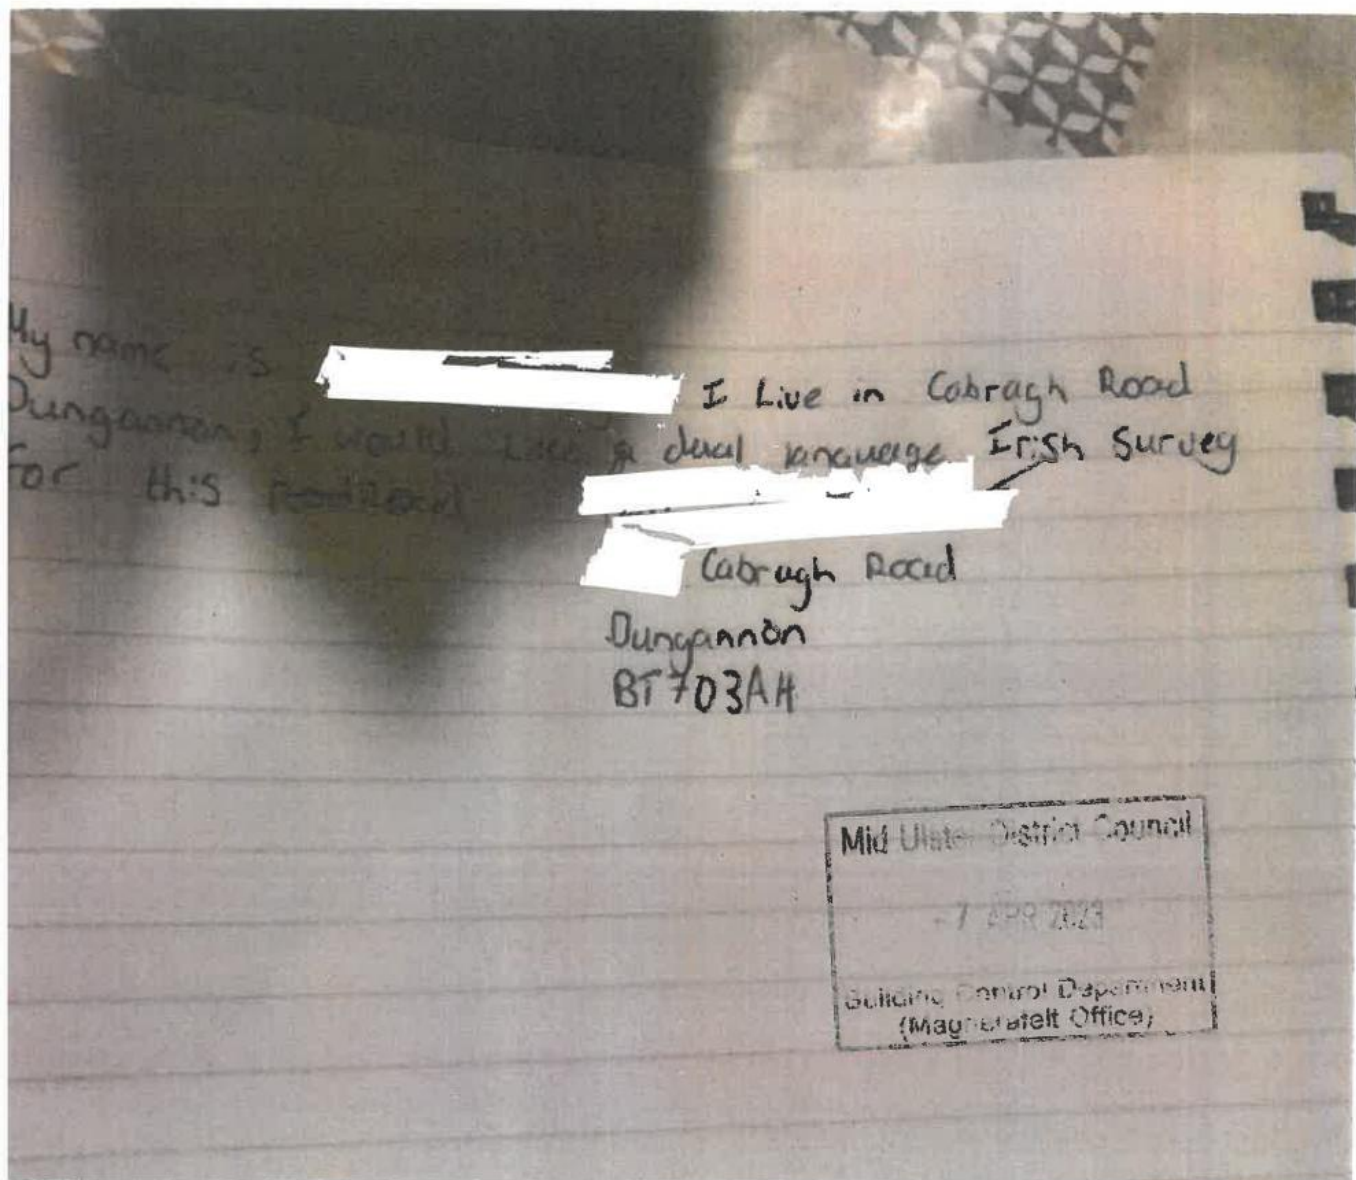 My name is I Live in Cabragh Road
Dungannon, I would like a dual language Irish Survey
For this Road
Cabragh Road
Dungannon
BT703AH
Mid Ulster District Council
-7 APR 2023
Building Control Department
(Magherafelt Office)